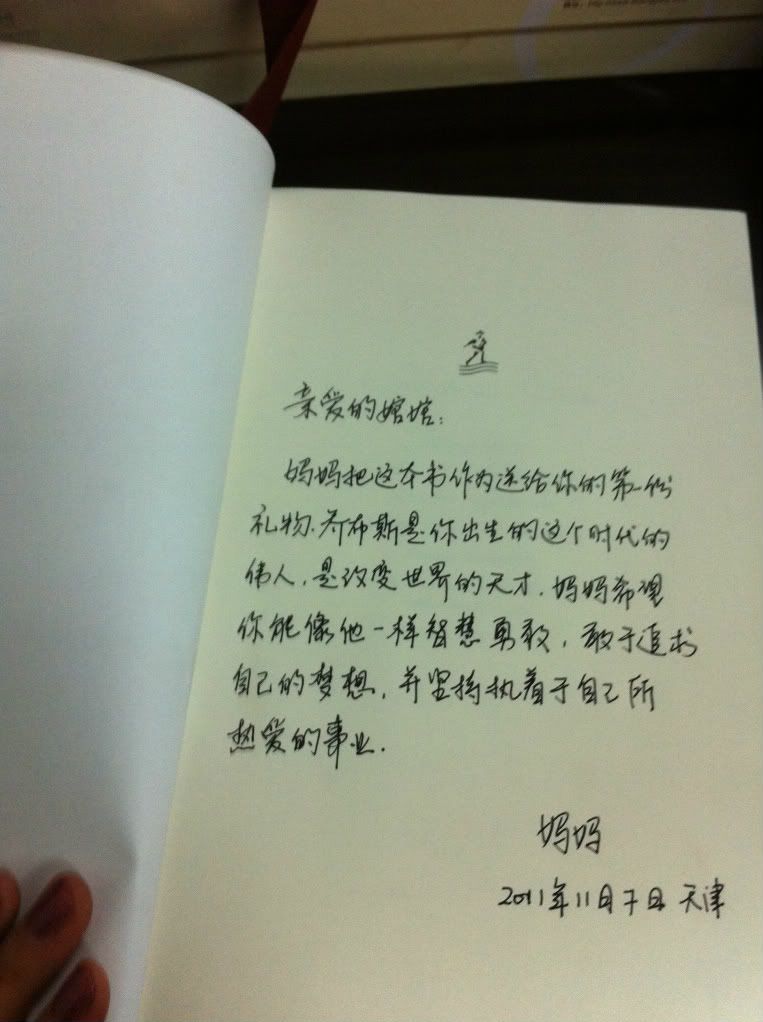 亲爱的婠婠：
妈妈把这本书作为送给你的第一份
礼物.乔布斯是你出生的这个时代的
伟人，是改变世界的天才.妈妈希望
你能像他一样智慧勇敢，敢于追求
自己的梦想，并坚持执着于自己所
热爱的事业.
妈妈
2011年11月7日 天津